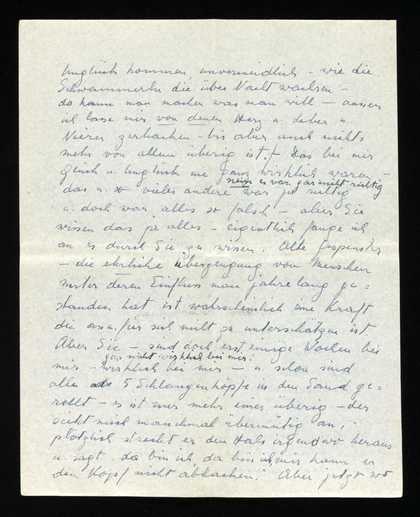 Unglück kommen, unvermeidlich - wie die
Schwammerln die über Nacht wachsen -
da kann man machen was man will - ausser
ich lasse mir von denen Herz u. Leber u.
Nieren zerhacken - bis aber auch nichts
mehr von allem übrig ist. + Das bei mir
Glück u. Unglück nie ganz wirklich waren -
nein es war gar nicht richtig
das u. so vieles andere war ja richtig
u. doch war alles so falsch - aber Sie
wissen das ja alles - eigentlich fange ich
an es durch Sie zu wissen. Alte Gespenster
- die ehrliche Überzeugung von Menschen
unter deren Einfluss man jahrelang ge=
standen hat ist wahrscheinlich eine Kraft
die nicht zu unterschätzen ist
Aber Sie - sind doch erst einige Wochen bei
gar nicht wirklich bei mir.
mir - wirklich bei mir - u. schon sind
alle 5 Schlangenköpfe in den Sand ge=
rollt - es ist nur mehr einer übrig - der
sieht mich manchmal übermütig an,
plötzlich streckt er den Hals irgendwo heraus
u. sagt, da bin ich da bin ich mir kann er
den Kopf nicht abhacken! Aber jetzt wo